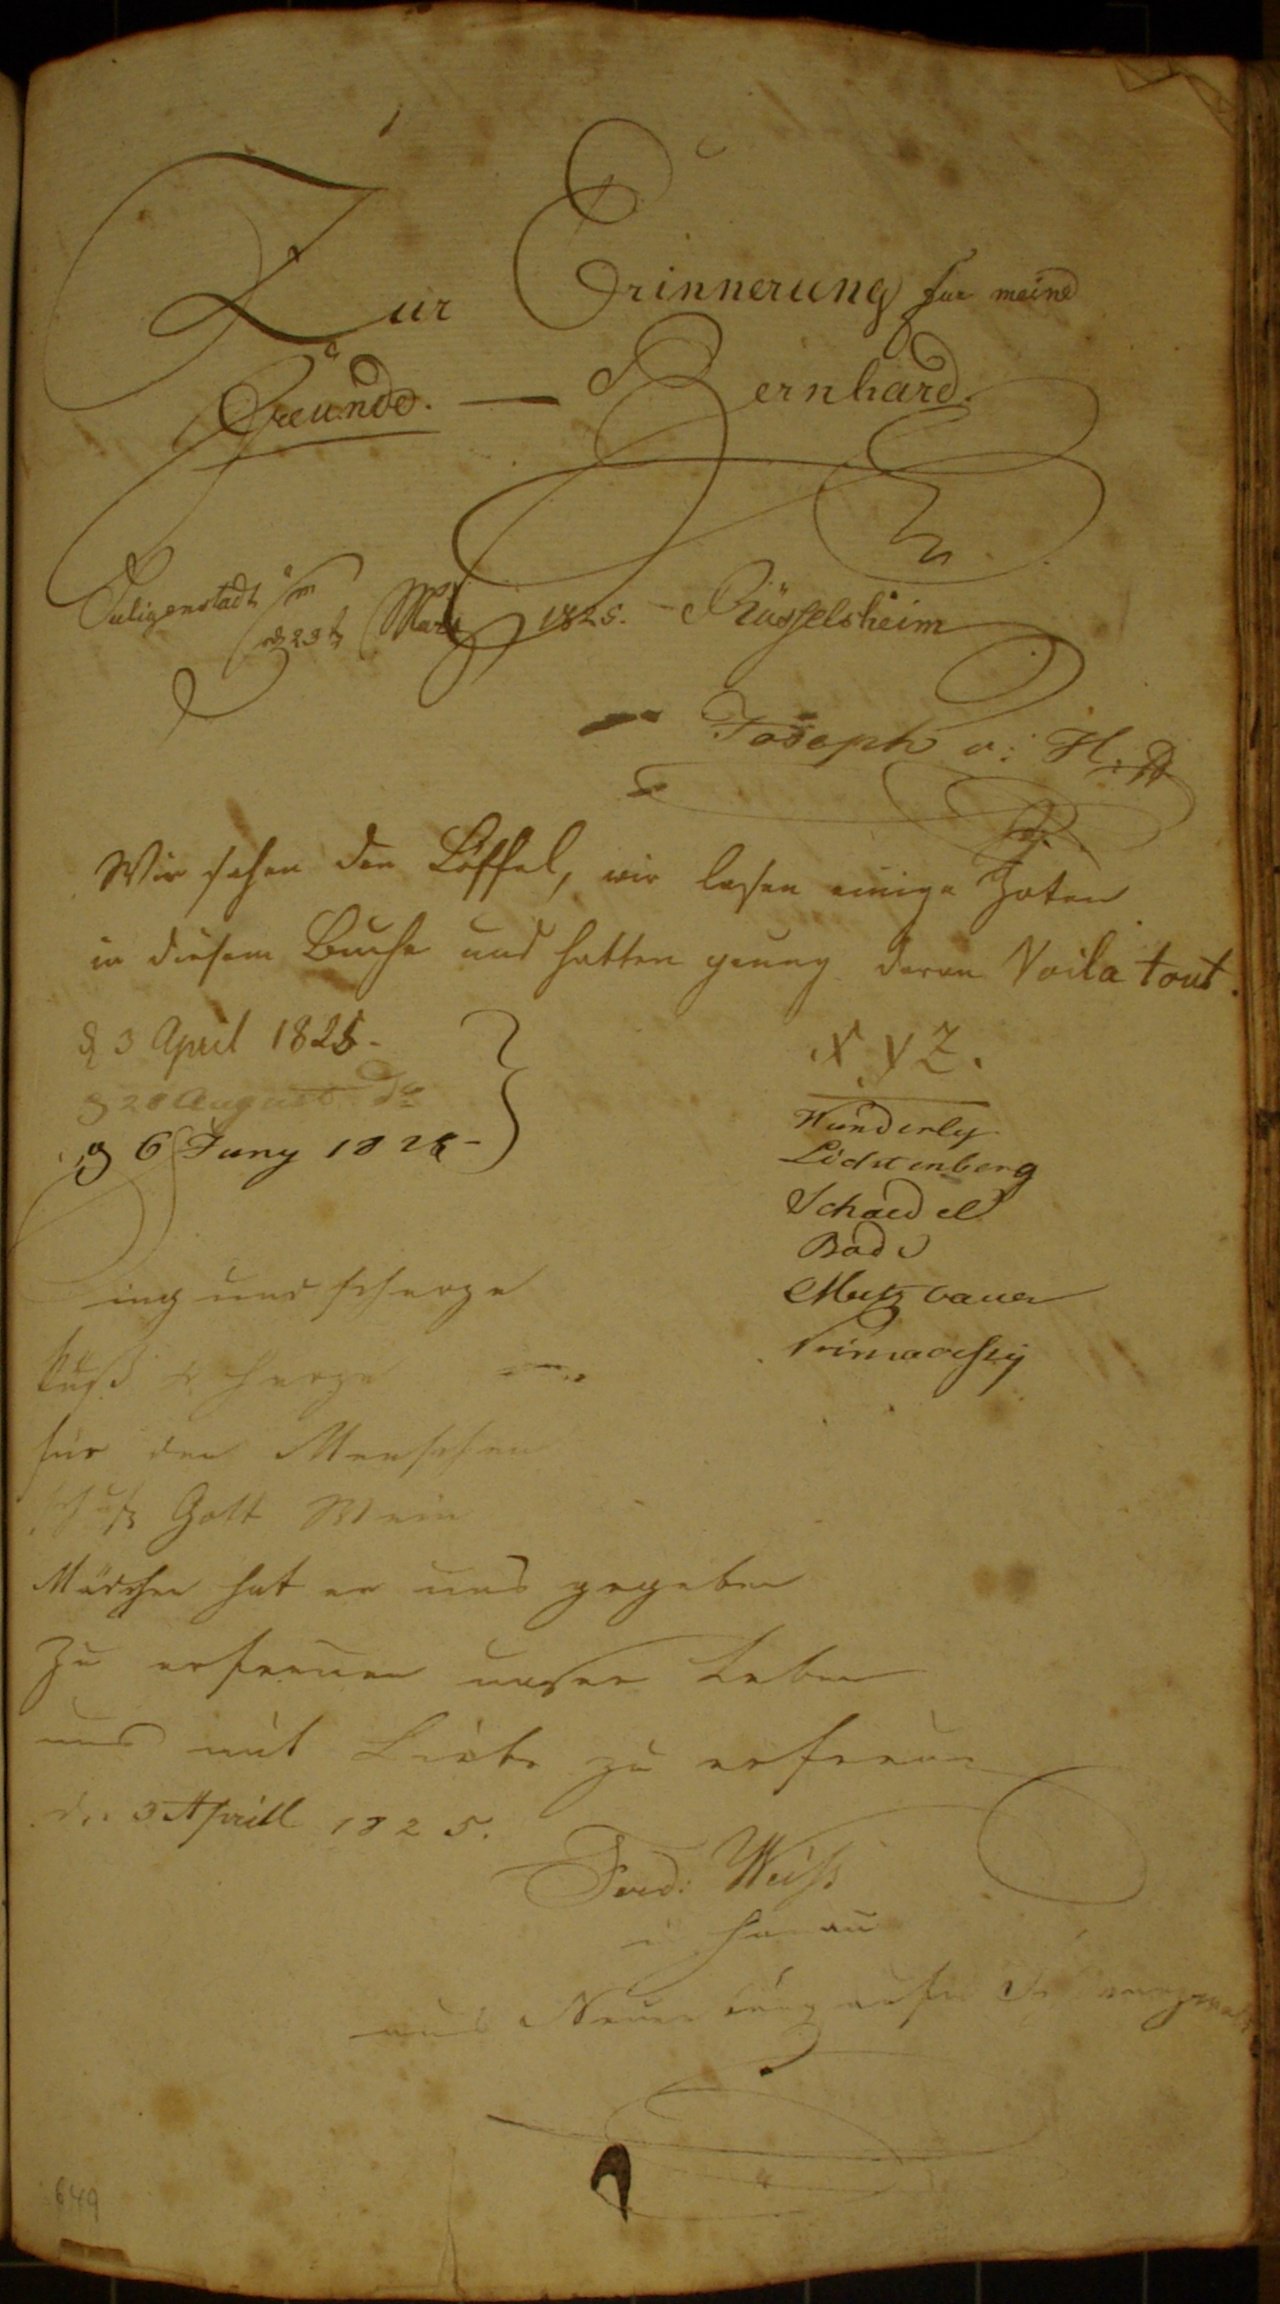 Zur Erinnerung für meine
Freunde. — Bernhard.
Seligenstadt im
d 23t März 1825. - Rüsselsheim
Joseph v: H:
Wir sahen den Löffel, wir lasen einige Zoten
in diesem Buche und hatten genug daran Voila tout.
d 3 April 1825.
X. Y Z.
d 28 August do
d 6 Juny 1826 -
Hunderly
Lichtenberg
Schaedel
Bode
Mutzbauer
Primavessy
und scherze
Kuß herze
für den Menschen
schuf Gott Wein
Mädchen hat er uns gegeben
zu erfreuen unser Leben
uns mit Liebe zu erfreun
den 3 Aprill 1825.
Ferd: Weiß
in Hanau
aus
649